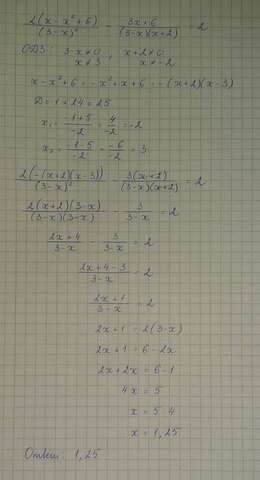 2(x - x² + 6)/(3-x)² - (3x+6)/((3-x)(x+2)) = 2
ОДЗ: 3-x ≠ 0, x+2 ≠ 0
x ≠ 3 x ≠ -2
x - x² + 6 = -x² + x + 6 = -(x+2)(x-3)
D = 1 + 24 = 25
x₁ = (-1+5)/-2 = 4/-2 = -2
x₂ = (-1-5)/-2 = -6/-2 = 3
2(-(x+2)(x-3))/(3-x)² - 3(x+2)/((3-x)(x+2)) = 2
2(x+2)(3-x)/((3-x)(3-x)) - 3/(3-x) = 2
(2x+4)/(3-x) - 3/(3-x) = 2
(2x+4-3)/(3-x) = 2
(2x+1)/(3-x) = 2
2x+1 = 2(3-x)
2x+1 = 6-2x
2x+2x = 6-1
4x = 5
x = 5:4
x = 1,25
Ответ: 1,25